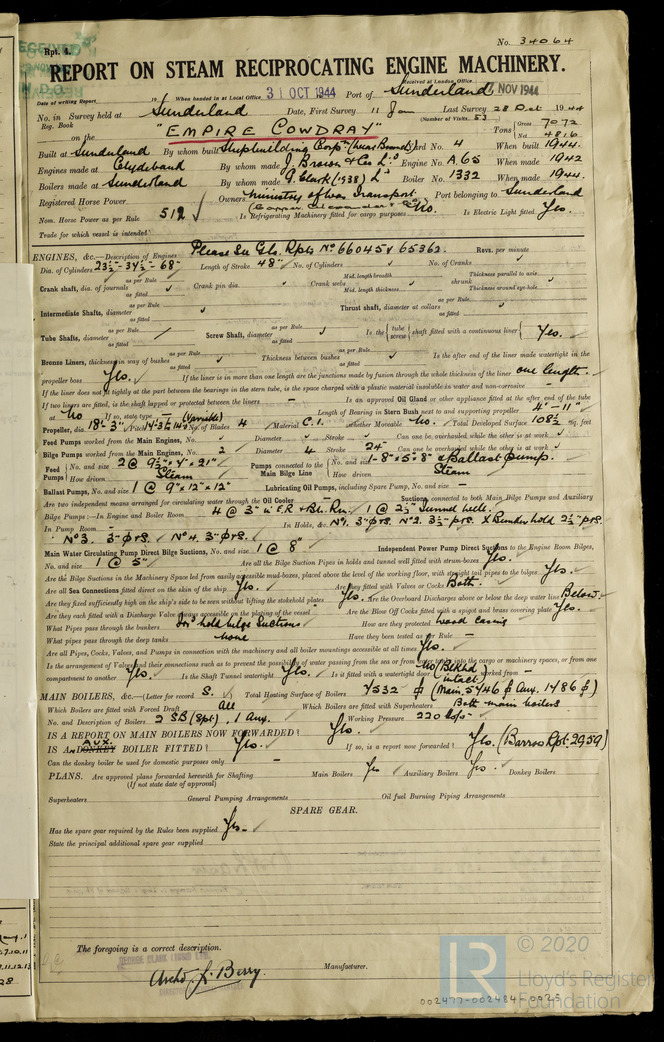 No. 34064
Rpt. 4.
REPORT ON STEAM RECIPROCATING ENGINE MACHINERY.
Received at London Office
Date of writing Report 19 When handed in at Local Office 31 OCT 1944 Port of Sunderland NOV 1944
No. in Reg. Book Survey held at Sunderland Date, First Survey 11 Jan Last Survey 28 Oct 1944
(Number of Visits 53)
on the "EMPIRE COWDRAY" Tons { Gross 7072 Net 4816
Built at Sunderland By whom built Shipbuilding Corpn (Wear Branch) Yard No. 4 When built 1944.
Engines made at Clydebank By whom made J. Brown & Co Ld Engine No. A.65 When made 1942
Boilers made at Sunderland By whom made G. Clark (1938) Ld Boiler No. 1332 When made 1944.
Registered Horse Power Owners Ministry of War Transport Port belonging to Sunderland
Nom. Horse Power as per Rule 512 Is Refrigerating Machinery fitted for cargo purposes No. Is Electric Light fitted Yes.
Trade for which vessel is intended
ENGINES, &c.—Description of Engines Please See Gls. Rpts No 66045 & 65362. Revs. per minute
Dia. of Cylinders 23½"-37½"-68" Length of Stroke 48" No. of Cylinders No. of Cranks
Crank shaft, dia. of journals as per Rule as fitted Crank pin dia. Crank webs Mid. length breadth Mid. length thickness shrunk Thickness parallel to axis Thickness around eye-hole
Intermediate Shafts, diameter as per Rule as fitted Thrust shaft, diameter at collars as per Rule as fitted
Tube Shafts, diameter as per Rule as fitted Screw Shaft, diameter as per Rule as fitted Is the { tube screw } shaft fitted with a continuous liner { Yes.
Bronze Liners, thickness in way of bushes as per Rule as fitted Thickness between bushes as per Rule as fitted Is the after end of the liner made watertight in the
propeller boss Yes. If the liner is in more than one length are the junctions made by fusion through the whole thickness of the liner one length.
If the liner does not fit tightly at the part between the bearings in the stern tube, is the space charged with a plastic material insoluble in water and non-corrosive —
If two liners are fitted, is the shaft lapped or protected between the liners — Is an approved Oil Gland or other appliance fitted at the after end of the tube
shaft No If so, state type — Length of Bearing in Stern Bush next to and supporting propeller 4'-11"
Propeller, dia. 18'-3" Pitch (Variable) No. of Blades 4 Material C.I. whether Moveable No. Total Developed Surface 108½ sq. feet
Feed Pumps worked from the Main Engines, No. Diameter Stroke Can one be overhauled while the other is at work
Bilge Pumps worked from the Main Engines, No. 2 Diameter 4 Stroke 24" Can one be overhauled while the other is at work
Feed Pumps { No. and size 2 @ 9½" × 7" × 21" How driven Steam Pumps connected to the Main Bilge Line { No. and size 1-8"×5"×8" & Ballast pump. How driven Steam
Ballast Pumps, No. and size 1 @ 9"×12"×12" Lubricating Oil Pumps, including Spare Pump, No. and size —
Are two independent means arranged for circulating water through the Oil Cooler — Suctions, connected to both Main Bilge Pumps and Auxiliary
Bilge Pumps:—In Engine and Boiler Room 4 @ 3" in E.R & Blr. Rm. 1 @ 2½" tunnel well.
In Pump Room In Holds, &c. No 1. 3" p & s. No 2. 3½" p & s. X Bunker hold 2½" p & s.
No 3. 3" p & s. No 4. 3" p & s.
Main Water Circulating Pump Direct Bilge Suctions, No. and size 1 @ 8" Independent Power Pump Direct Suctions to the Engine Room Bilges,
No. and size 1 @ 5" Are all the Bilge Suction Pipes in holds and tunnel well fitted with strum-boxes Yes.
Are the Bilge Suctions in the Machinery Space led from easily accessible mud-boxes, placed above the level of the working floor, with straight tail pipes to the bilges Yes.
Are all Sea Connections fitted direct on the skin of the ship Yes. Are they fitted with Valves or Cocks Both.
Are they fixed sufficiently high on the ship's side to be seen without lifting the stokehold plates Yes. Are the Overboard Discharges above or below the deep water line Below
Are they each fitted with a Discharge Valve always accessible on the plating of the vessel Yes. Are the Blow Off Cocks fitted with a spigot and brass covering plate Yes.
What Pipes pass through the bunkers For'd hold bilge suctions How are they protected Wood casing
What pipes pass through the deep tanks None Have they been tested as per Rule —
Are all Pipes, Cocks, Valves, and Pumps in connection with the machinery and all boiler mountings accessible at all times Yes.
Is the arrangement of Valves and their connections such as to prevent the possibility of water passing from the sea or from water tanks into the cargo or machinery spaces, or from one
compartment to another Yes. Is the Shaft Tunnel watertight Yes. Is it fitted with a watertight door No (Bkhd intact) worked from —
MAIN BOILERS, &c.—(Letter for record S.) Total Heating Surface of Boilers 7532 ф (Main 5746 ф Aux. 1786 ф)
Which Boilers are fitted with Forced Draft All Which Boilers are fitted with Superheaters Both main boilers
No. and Description of Boilers 2 SB (Spt), 1 Aux. Working Pressure 220 lbs
IS A REPORT ON MAIN BOILERS NOW FORWARDED? Yes.
IS A DONKEY AUX. BOILER FITTED? Yes. If so, is a report now forwarded? Yes. (Barrow Rpt. 2959)
Can the donkey boiler be used for domestic purposes only —
PLANS. Are approved plans forwarded herewith for Shafting Main Boilers Yes Auxiliary Boilers Yes. Donkey Boilers
(If not state date of approval)
Superheaters General Pumping Arrangements Oil fuel Burning Piping Arrangements
SPARE GEAR.
Has the spare gear required by the Rules been supplied Yes.
State the principal additional spare gear supplied
The foregoing is a correct description.
GEORGE CLARK (1938) LTD.
Archd J. Berry. Manufacturer.
LR © 2020
Lloyd's Register
Foundation
002477-002484-0925